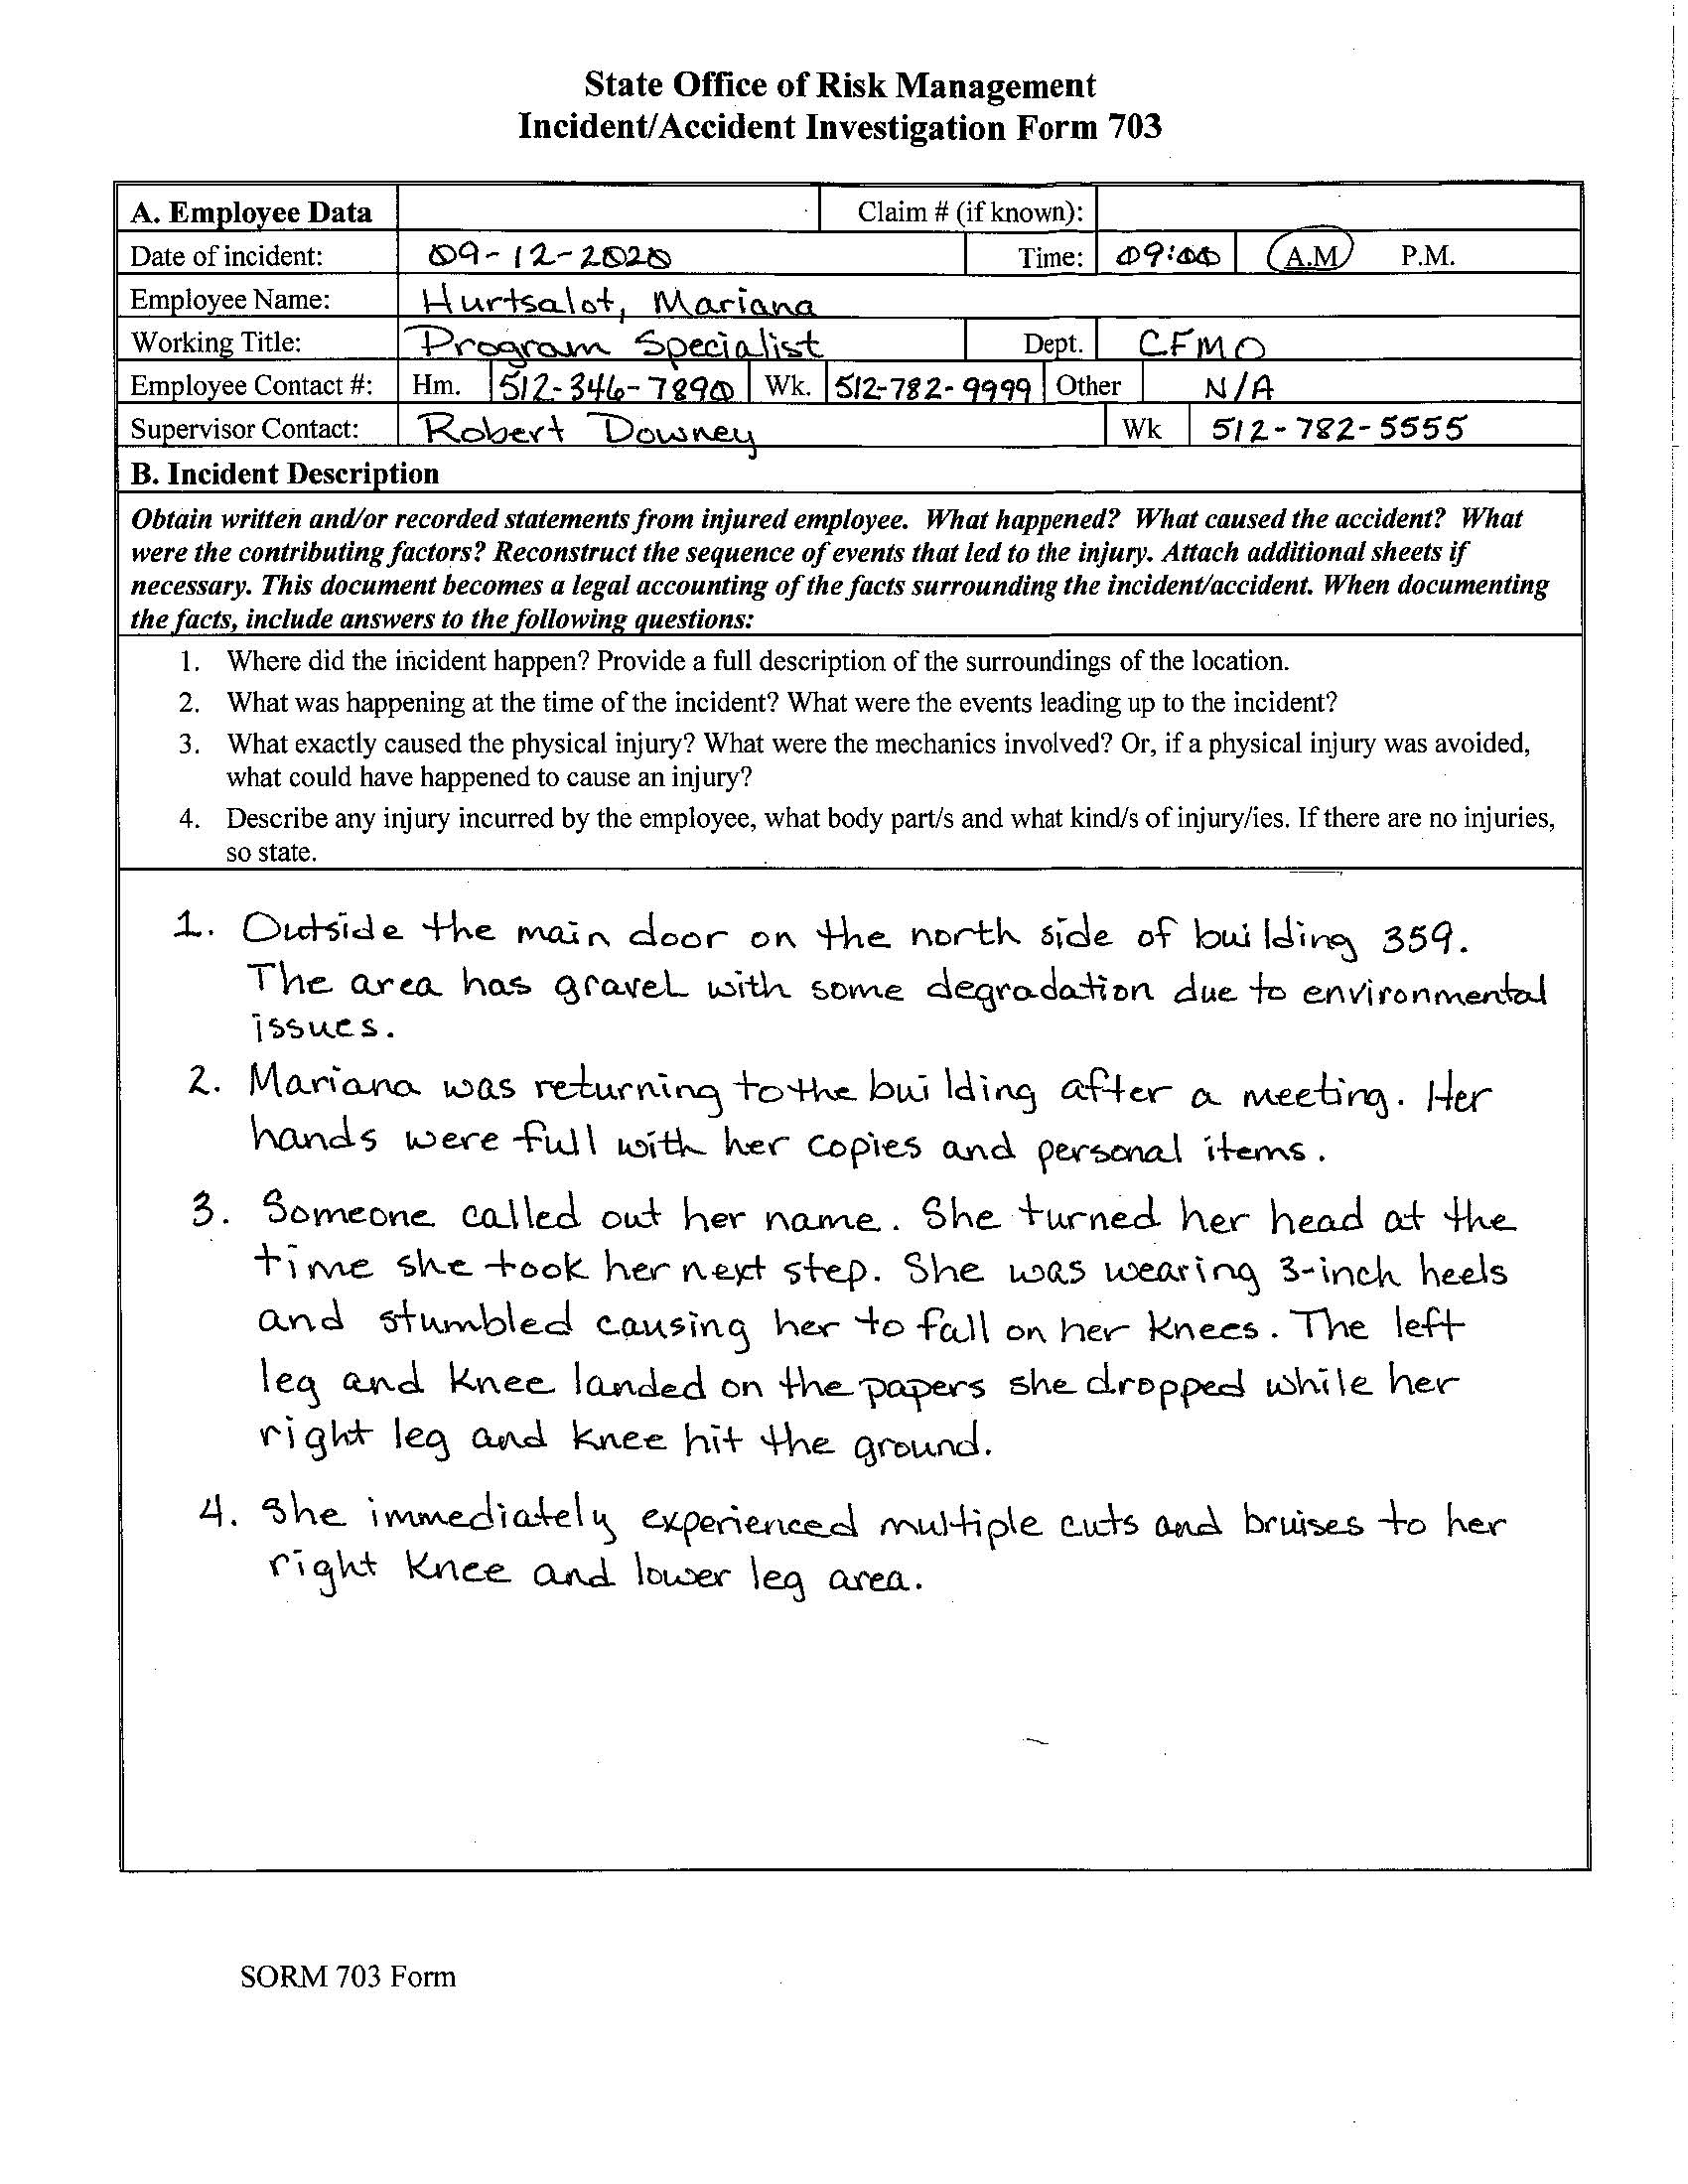 State Office of Risk Management
Incident/Accident Investigation Form 703
A. Employee Data Claim # (if known):
Date of incident: 09-12-2020 Time: 09:00 A.M P.M.
Employee Name: Hurtsalot, Mariana
Working Title: Program Specialist Dept. CFMO
Employee Contact #: Hm. 512-346-7890 Wk. 512-782-9999 Other N/A
Supervisor Contact: Robert Downey Wk 512-782-5555
B. Incident Description
Obtain written and/or recorded statements from injured employee. What happened? What caused the accident? What
were the contributing factors? Reconstruct the sequence of events that led to the injury. Attach additional sheets if
necessary. This document becomes a legal accounting of the facts surrounding the incident/accident. When documenting
the facts, include answers to the following questions:
1. Where did the incident happen? Provide a full description of the surroundings of the location.
2. What was happening at the time of the incident? What were the events leading up to the incident?
3. What exactly caused the physical injury? What were the mechanics involved? Or, if a physical injury was avoided,
what could have happened to cause an injury?
4. Describe any injury incurred by the employee, what body part/s and what kind/s of injury/ies. If there are no injuries,
so state.
1. Outside the main door on the north side of building 359.
The area has gravel with some degradation due to environmental
issues.
2. Mariana was returning to the building after a meeting. Her
hands were full with her copies and personal items.
3. Someone called out her name. She turned her head at the
time she took her next step. She was wearing 3-inch heels
and stumbled causing her to fall on her knees. The left
leg and knee landed on the papers she dropped while her
right leg and knee hit the ground.
4. She immediately experienced multiple cuts and bruises to her
right knee and lower leg area.
SORM 703 Form